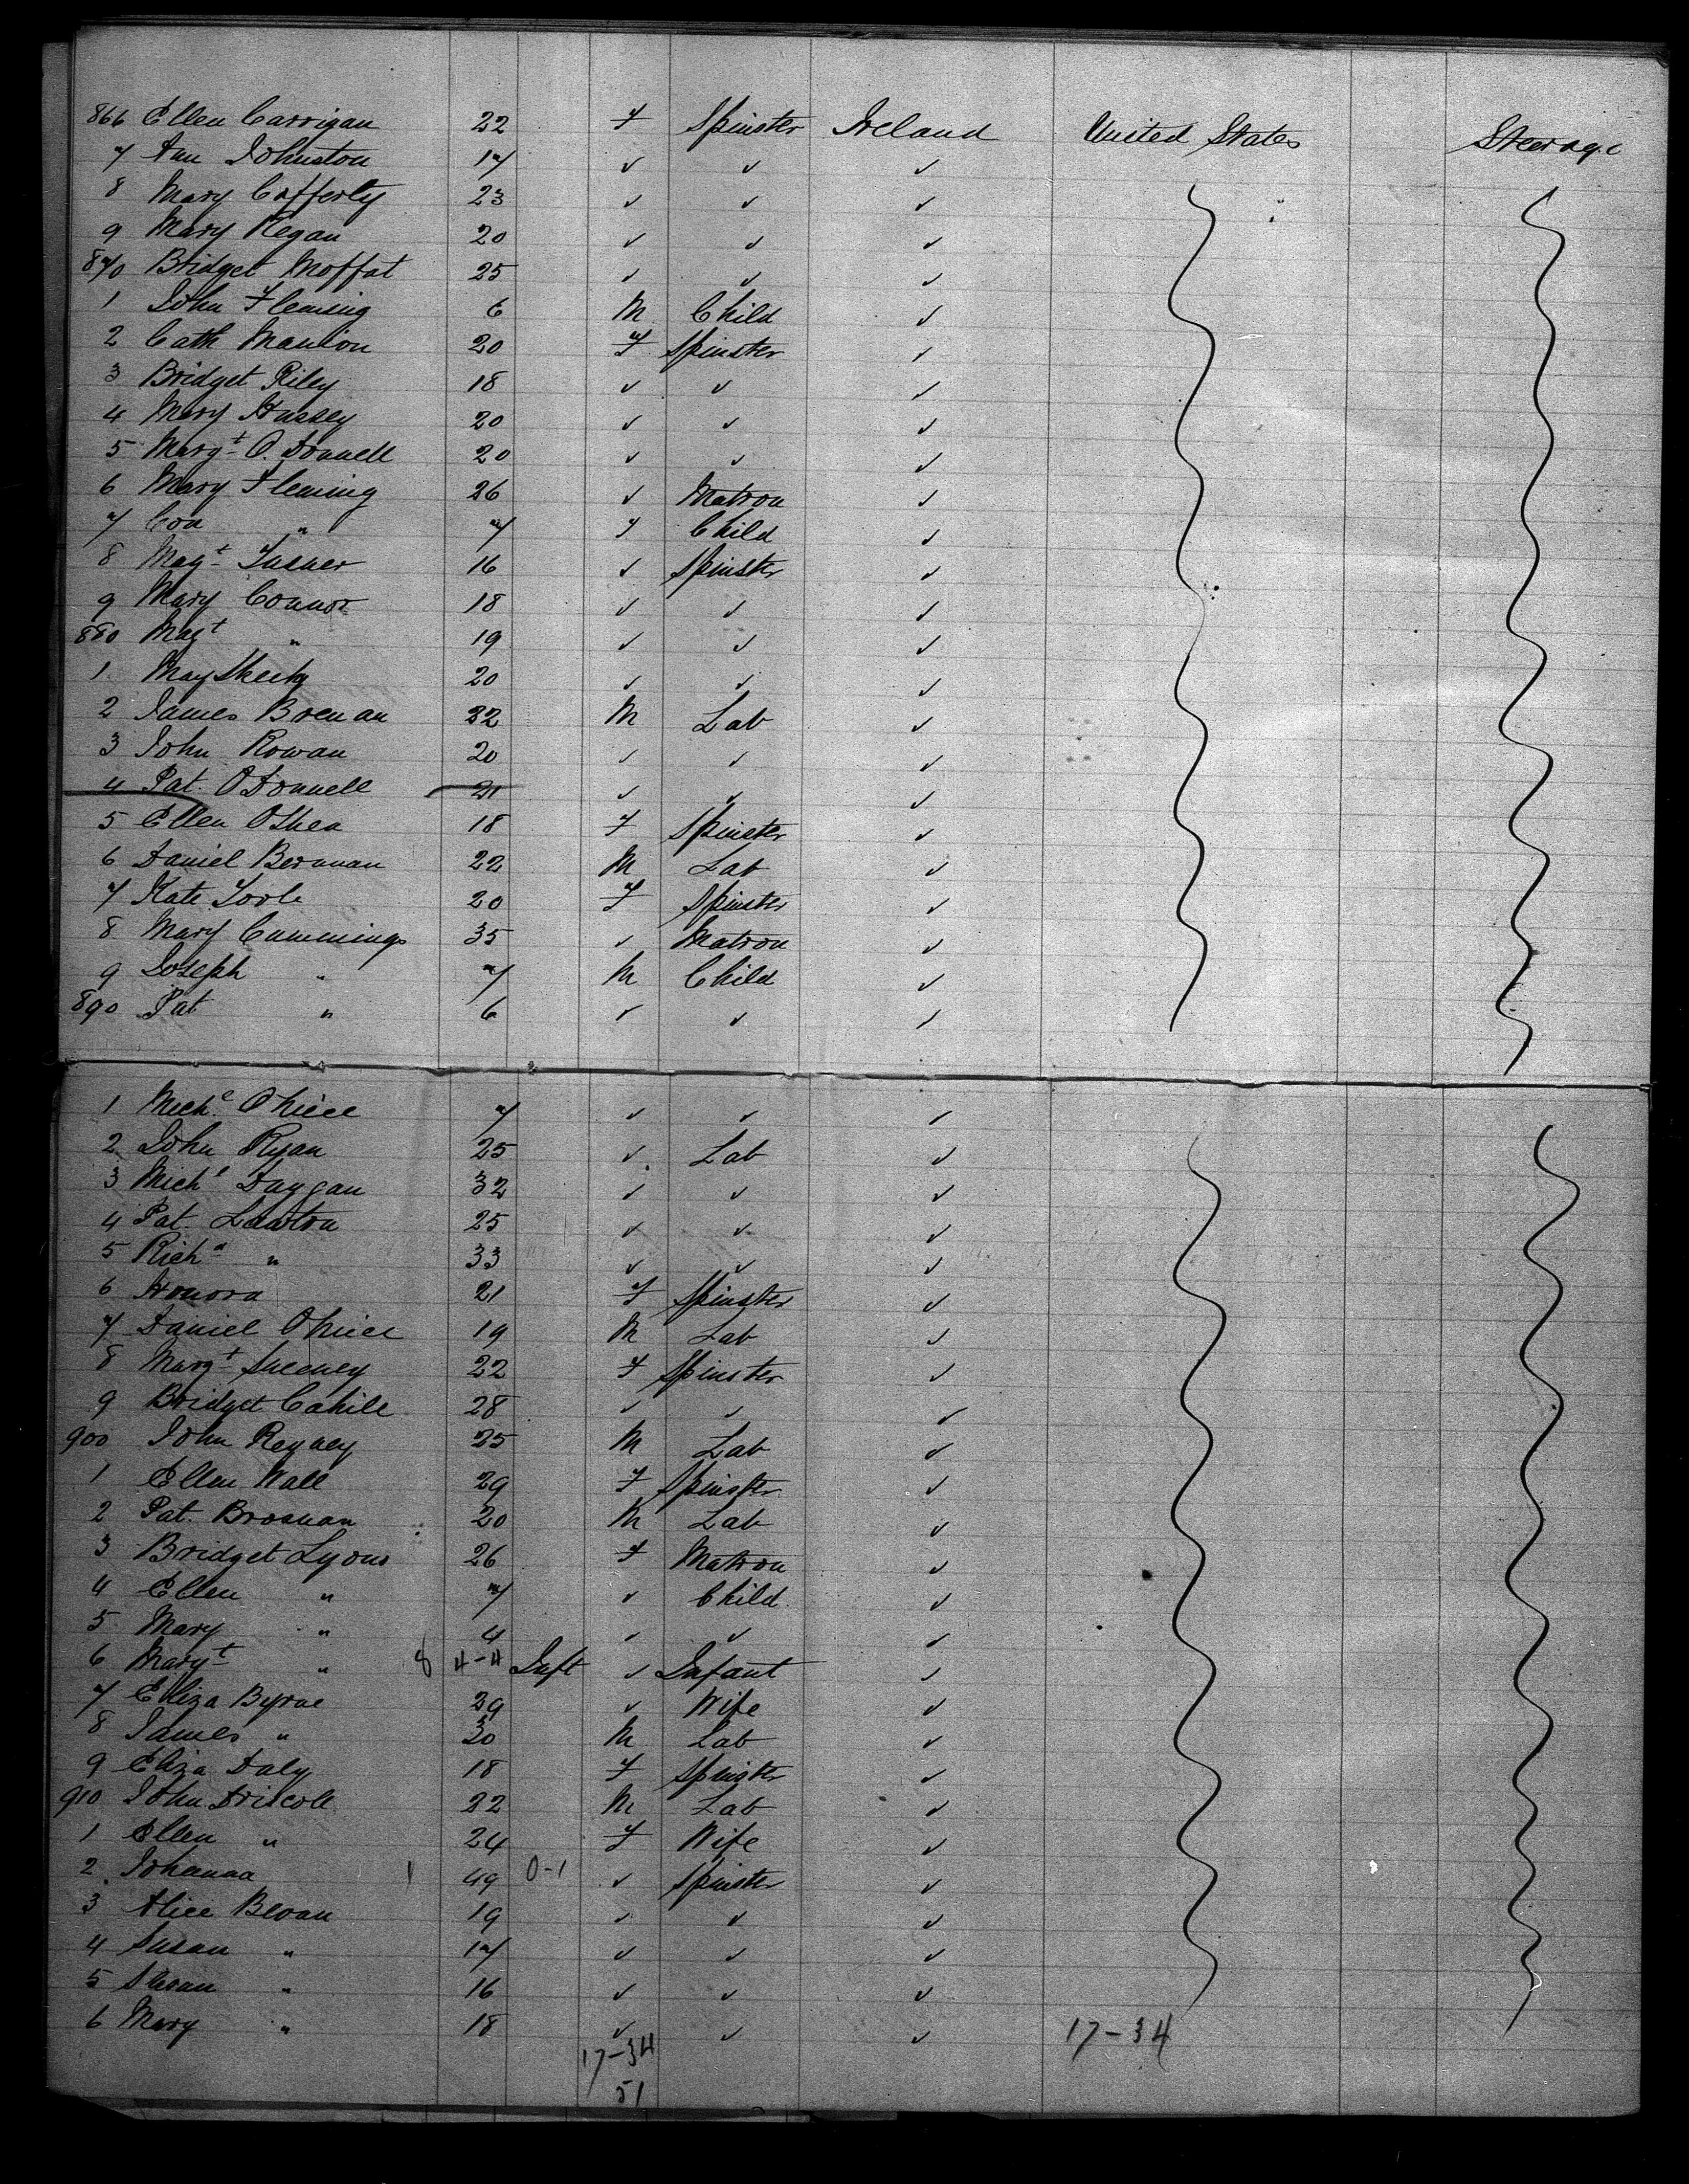 866 Ellen Carrigan 22 F Spinster Ireland United States Steerage
7 Ann Johnston 17 ✓ ✓ ✓
8 Mary Cafferty 23 ✓ ✓ ✓
9 Mary Regan 20 ✓ ✓ ✓
870 Bridget Moffat 25 ✓ ✓ ✓
1 John Fleming 6 M Child ✓
2 Cath Manion 20 F Spinster ✓
3 Bridget Riley 18 ✓ ✓ ✓
4 Mary Hussey 20 ✓ ✓ ✓
5 Margt O. Donnell 20 ✓ ✓ ✓
6 Mary Fleming 26 ✓ Matron ✓
7 Con " 7 F Child ✓
8 Magt 16 ✓ Spinster ✓
9 Mary Connor 18 ✓ ✓ ✓
880 Magt " 19 ✓ ✓ ✓
1 May Sheehy 20 ✓ ✓ ✓
2 James Brenan 22 M Lab ✓
3 John Rowan 20 ✓ ✓ ✓
4 Pat. O Donnell 21 ✓ ✓ ✓
5 Ellen OShea 18 F Spinster ✓
6 Daniel 22 M Lab ✓
7 Kate Toole 20 F Spinster ✓
8 Mary Cummings 35 ✓ Matron ✓
9 Joseph " 7 M Child ✓
890 Pat " 6 ✓ ✓ ✓
1 Michl 7 ✓ ✓ ✓
2 John Ryan 25 ✓ Lab ✓
3 Michl 32 ✓ ✓ ✓
4 Pat. Lawton 25 ✓ ✓ ✓
5 Richd " 33 ✓ ✓ ✓
6 Honora 21 F Spinster ✓
7 Daniel 19 M Lab ✓
8 Margt Sweeney 22 F Spinster ✓
9 Bridget Cahill 28 ✓ ✓ ✓
900 John 25 M Lab ✓
1 Ellen Wall 29 F Spinster ✓
2 Pat. Brosnan 20 M Lab ✓
3 Bridget Lyons 26 F Matron ✓
4 Ellen " 7 ✓ Child ✓
5 Mary " 4 ✓ ✓ ✓
6 Margt " 8 4-4 Inft ✓ Infant ✓
7 Eliza Byrne 29 ✓ Wife ✓
8 James " 30 M Lab ✓
9 Eliza Daly 18 F Spinster ✓
910 John Driscoll 22 M Lab ✓
1 Ellen " 24 F Wife ✓
2 Johanna 1 49 0-1 ✓ Spinster ✓
3 Alice Bevan 19 ✓ ✓ ✓
4 Susan " 17 ✓ ✓ ✓
5 " 16 ✓ ✓ ✓
6 Mary " 18 ✓ ✓ ✓ 17-34
17-34
51